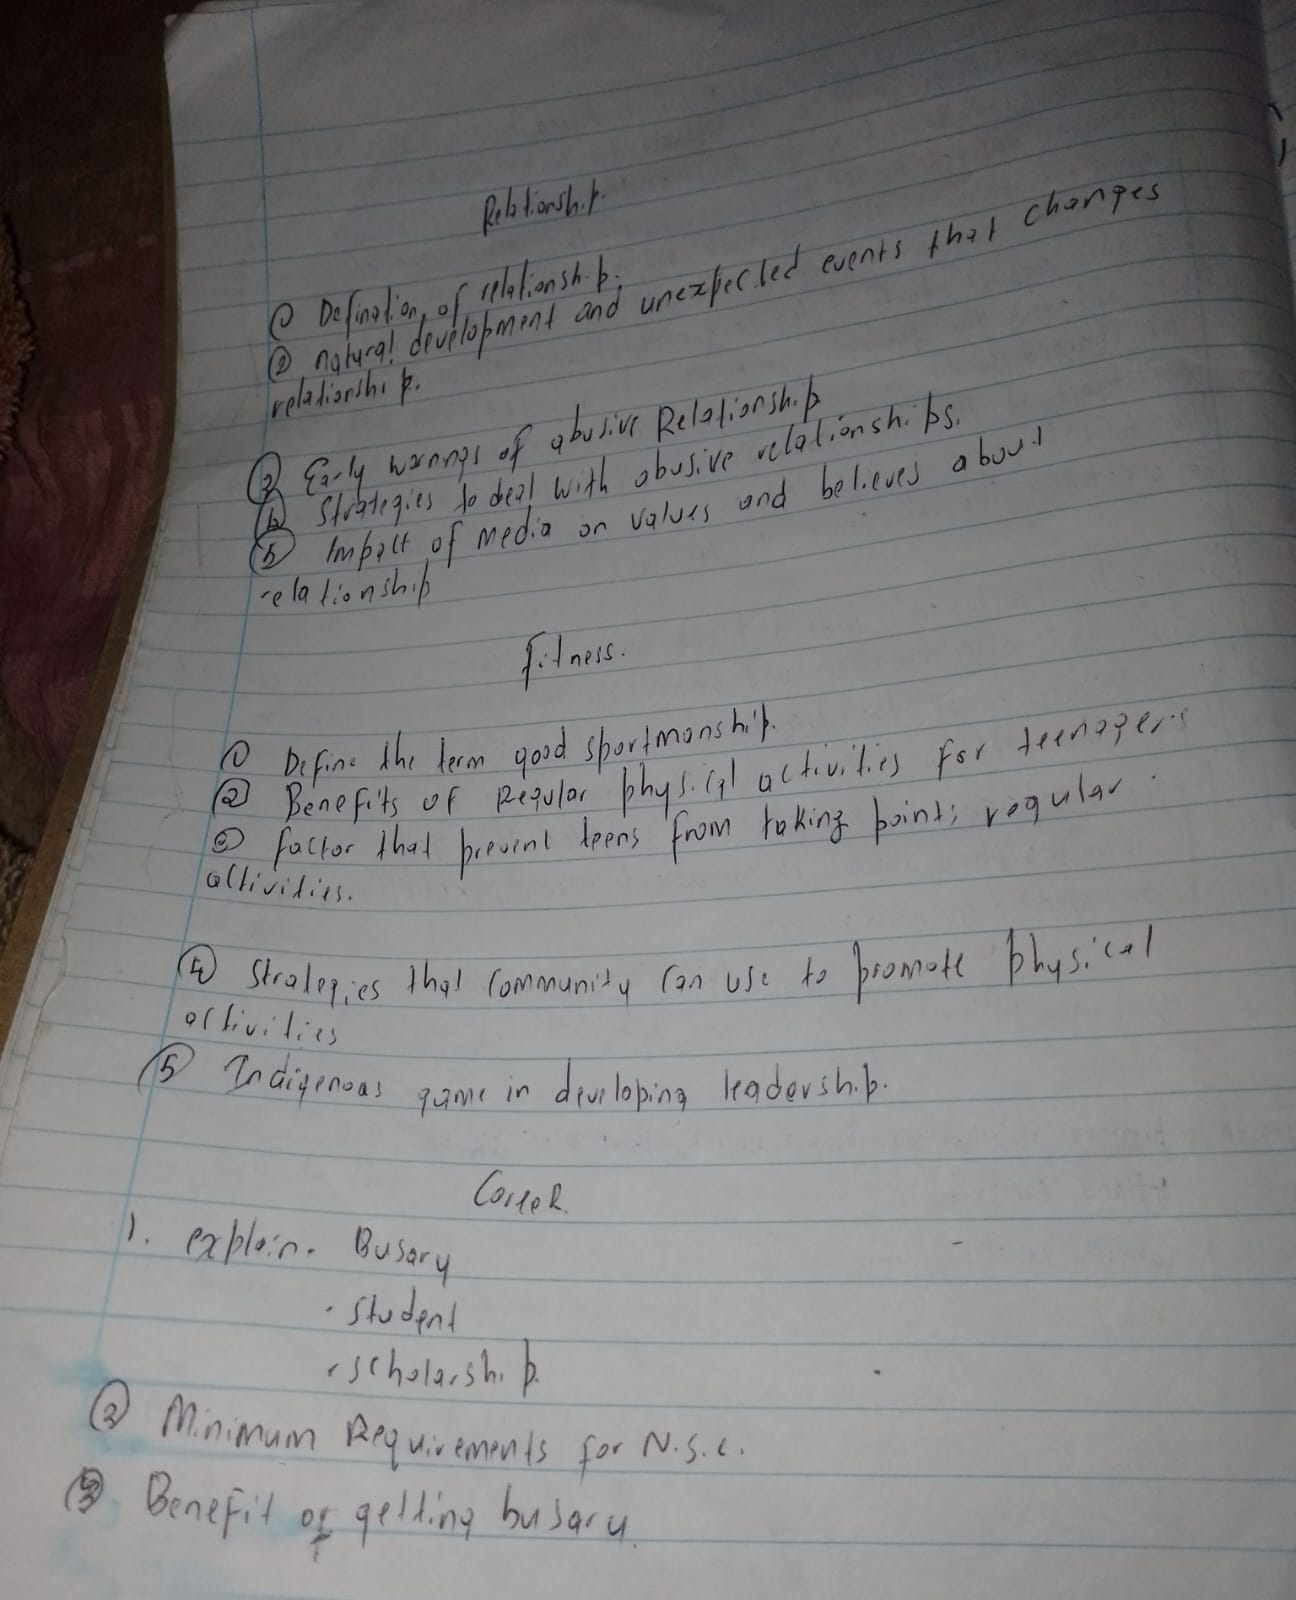 Relationship.
① Defination of relationship.
② natural development and unexpected events that changes
relationship.
③ Early warnings of abusive Relationship
④ Strategies to deal with abusive relationships.
⑤ Impact of media on values and believes about
relationship
Fitness.
① Define the term good sportmanship.
② Benefits of Regular physical activities for teenagers
③ factor that prevent teens from taking point; regular
activities.
④ Strategies that community can use to promote physical
activities
⑤ Indigenoas game in developing leadership.
Career.
1. explain. Busary
· Student
· scholarship.
② Minimum Requirements for N.S.C.
③ Benefit of getting busary.